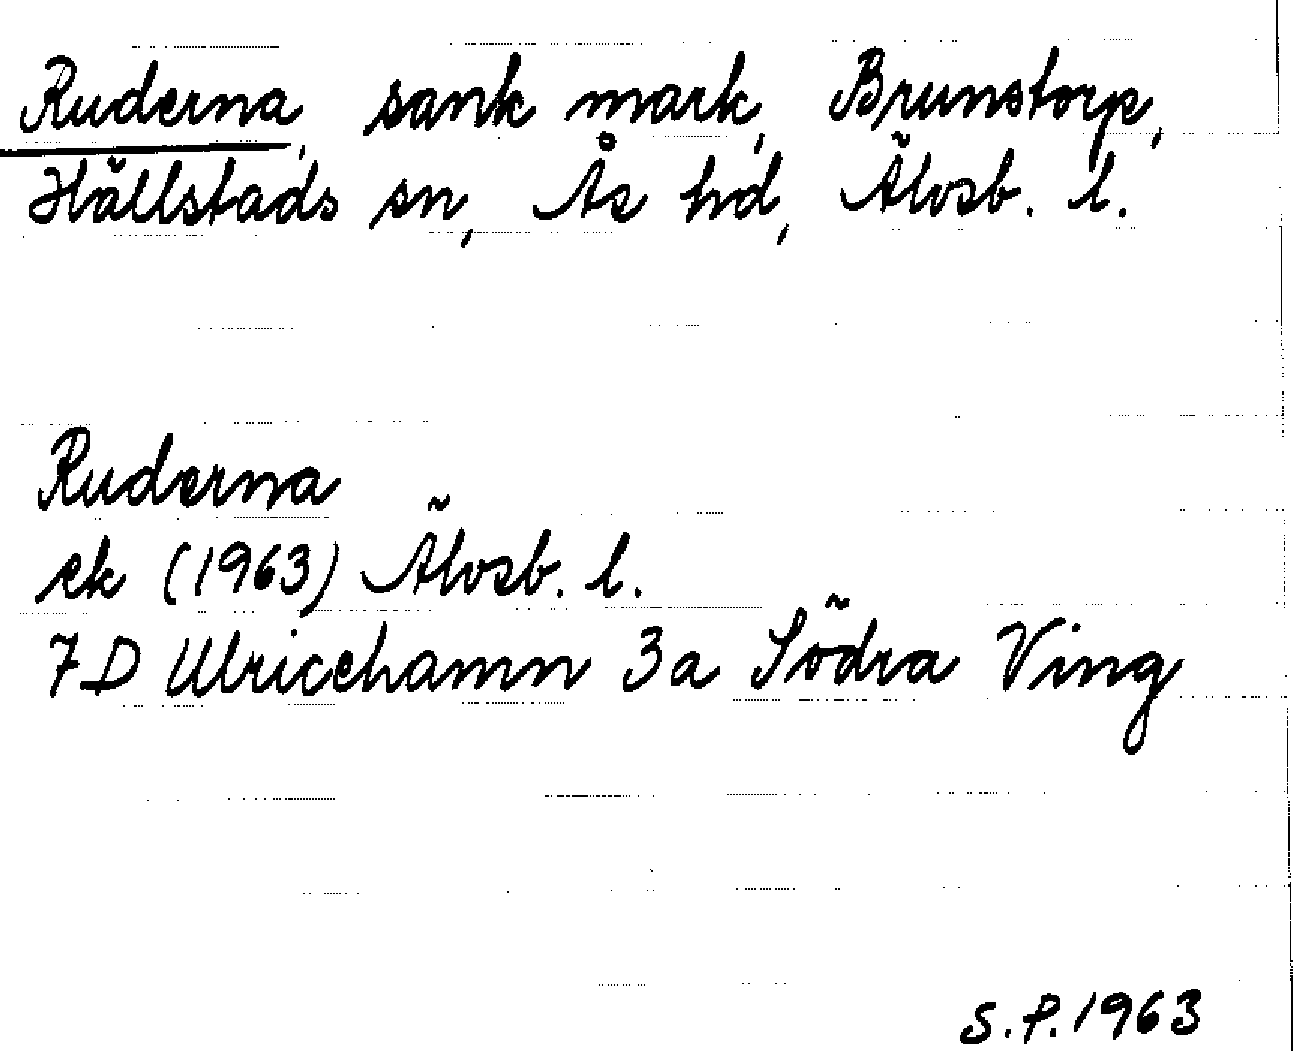 Ruderna, sank mark, Brunstorp,
Hällstads sn, Ås hd, Älvsb. l.
Ruderna
ek (1963) Älvsb. l.
7D Ulricehamn 3a Södra Ving
S.P. 1963